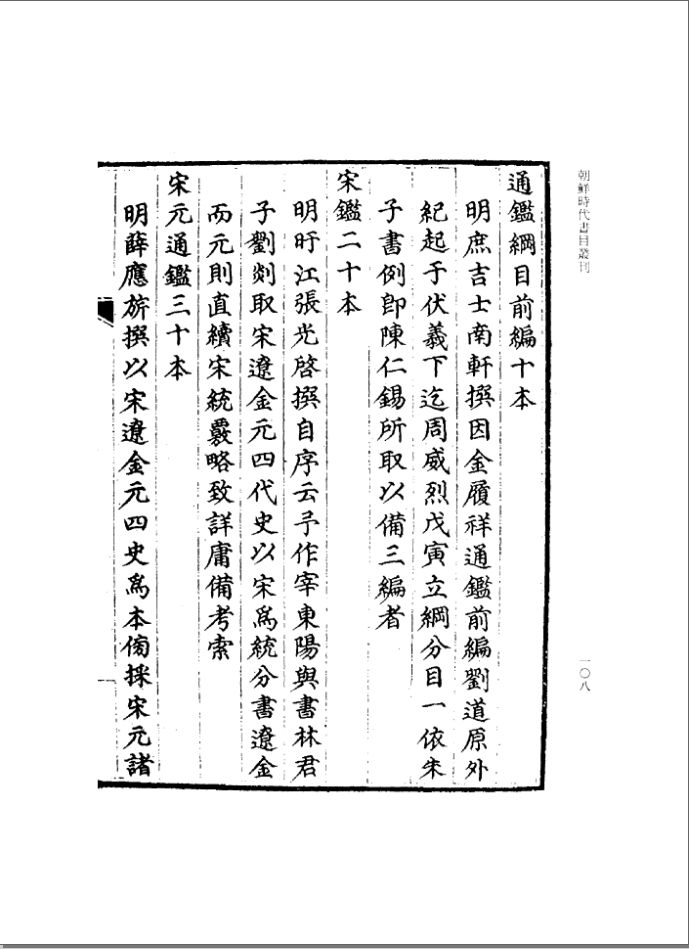 朝鮮時代書目叢刊
一〇八
通鑑綱目前編十本
明庶吉士南軒撰因金履祥通鑑前編劉道原外
紀起于伏羲下迄周威烈戊寅立綱分目一依朱
子書例卽陳仁錫所取以備三編者
宋鑑二十本
明旴江張光啓撰自序云予作宰東陽與書林君
子劉剡取宋遼金元四代史以宋爲統分書遼金
而元則直續宋統覈略致詳庸備考索
宋元通鑑三十本
明薛應旂撰以宋遼金元四史爲本傍採宋元諸